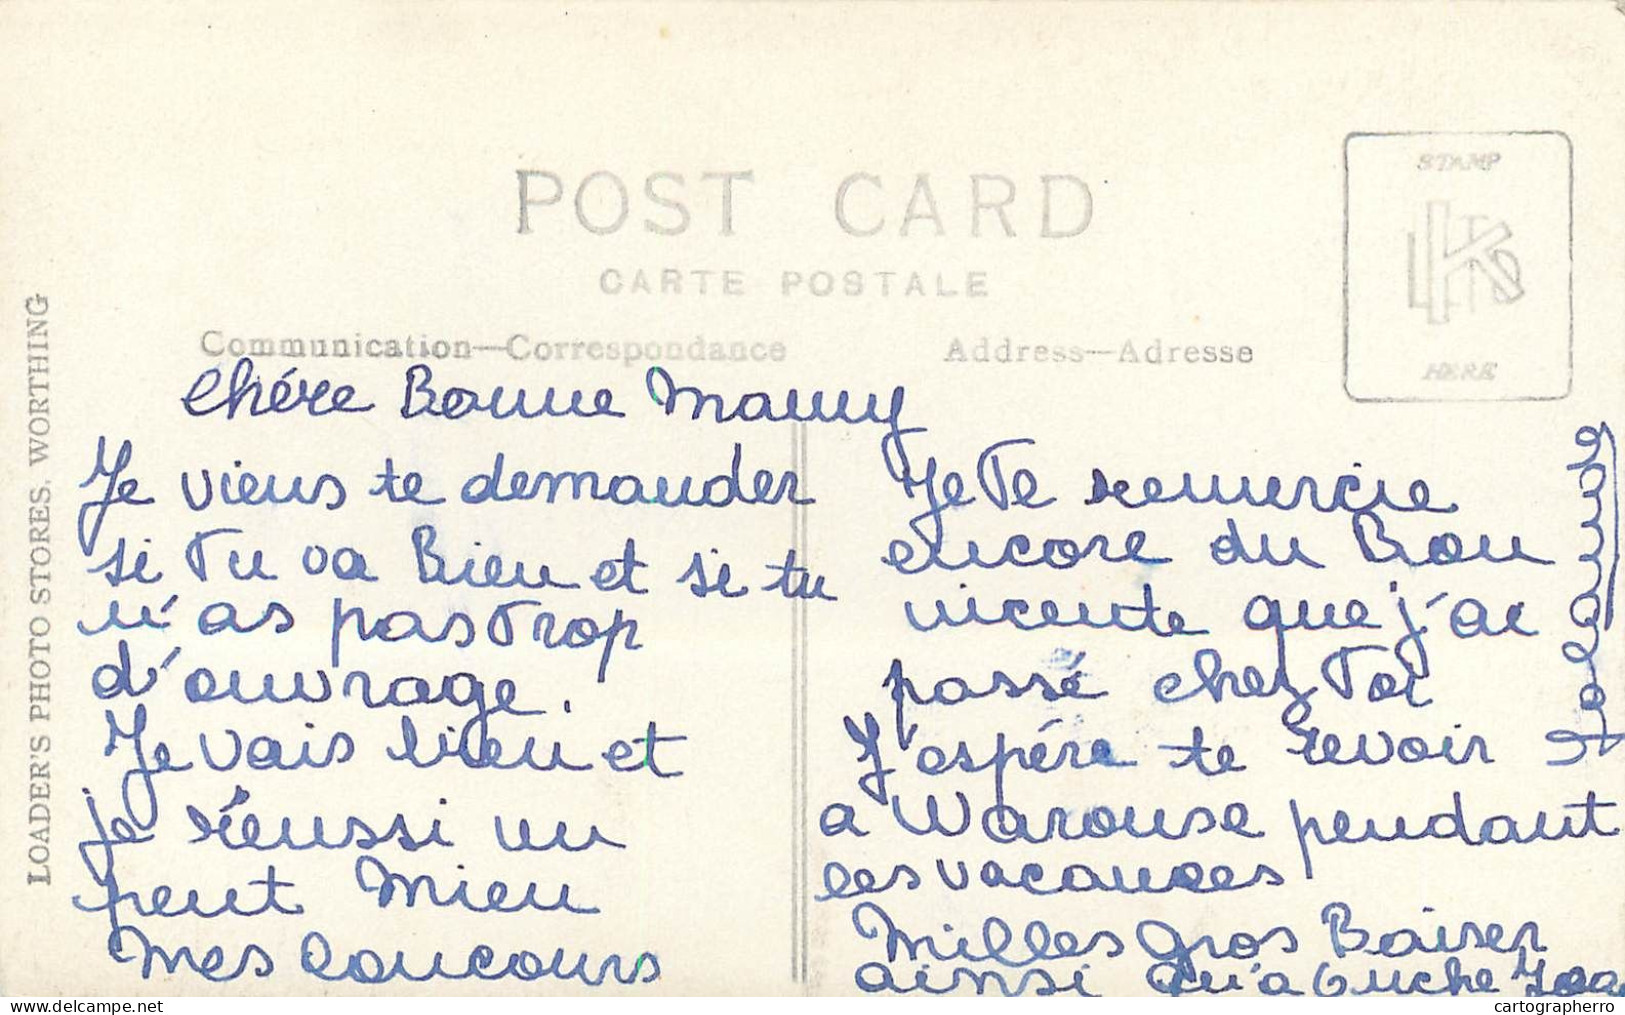 POST CARD
CARTE POSTALE
STAMP
HERE
Communication—Correspondance
Address—Adresse
LOADER'S PHOTO STORES. WORTHING
Chére Bonne Mamy
Je viens te demander
si tu va Bien et si tu
n'as pas trop
d'ouvrage.
Je vais bien et
je réeussi un
peut mieu
mes concours
Je te remercie
encore du Bon
nicente que j'ai
passé chez toi
J'espére te revoir
a Warouse pendant
les vacances
Milles gros Baiser
ainsi qu'a
cartographerro